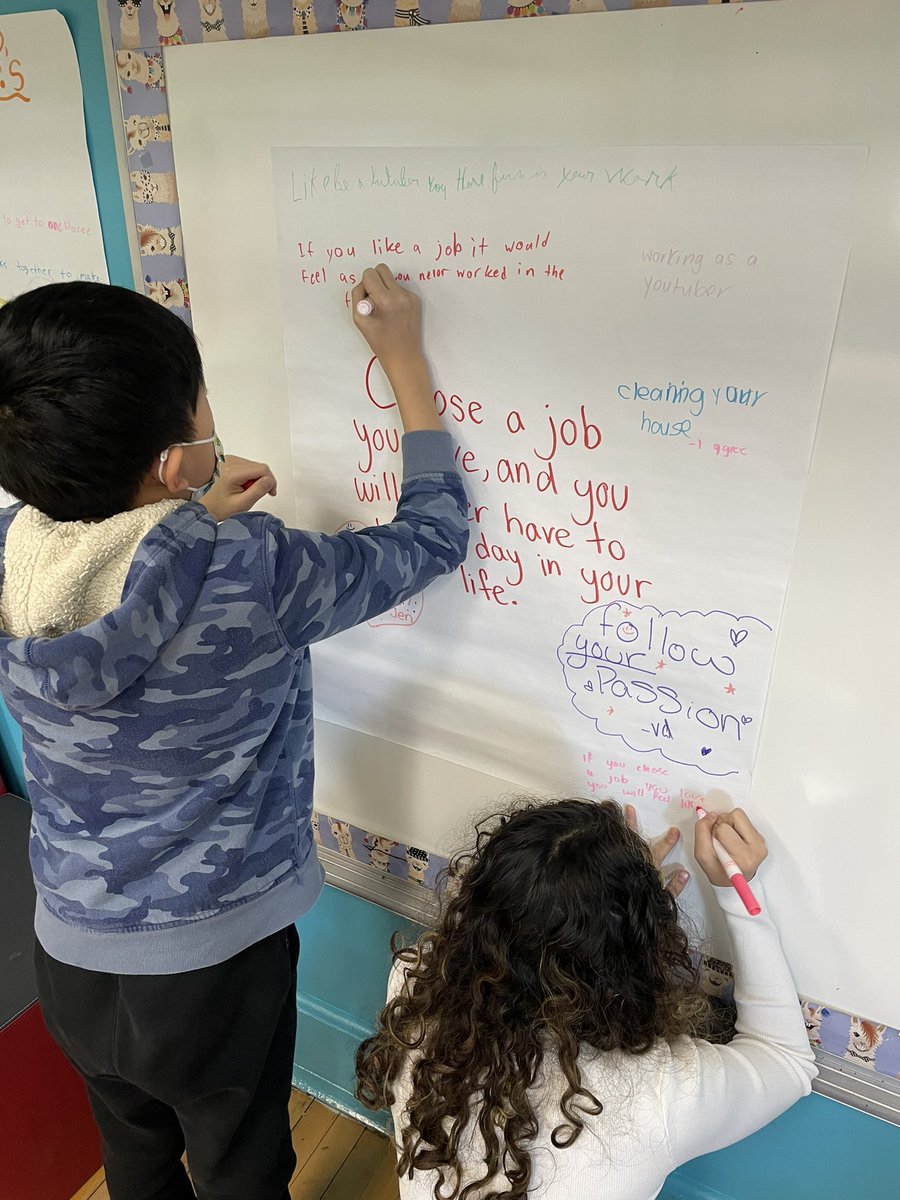 's
to get to one place
together to make
Like be a tutuber you Have fun in your Work
If you like a job it would
feel as you never worked in the
working as a
youtuber
cleaning your
house
-I agree
ose a job
you ve, and you
will er have to
day in your
life.
Jen
follow
your
Passion
-va
If you chose
a job you love
you will feel like